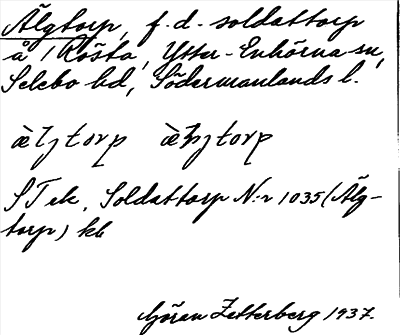 Älgtorp, f.d. soldattorp
å Rösta, Ytter-Enhörna sn,
Selebo hd, Södermanlands l.
STek. Soldattorp N:r 1035 (Älg-
torp) kb
Göran Zetterberg 1937.